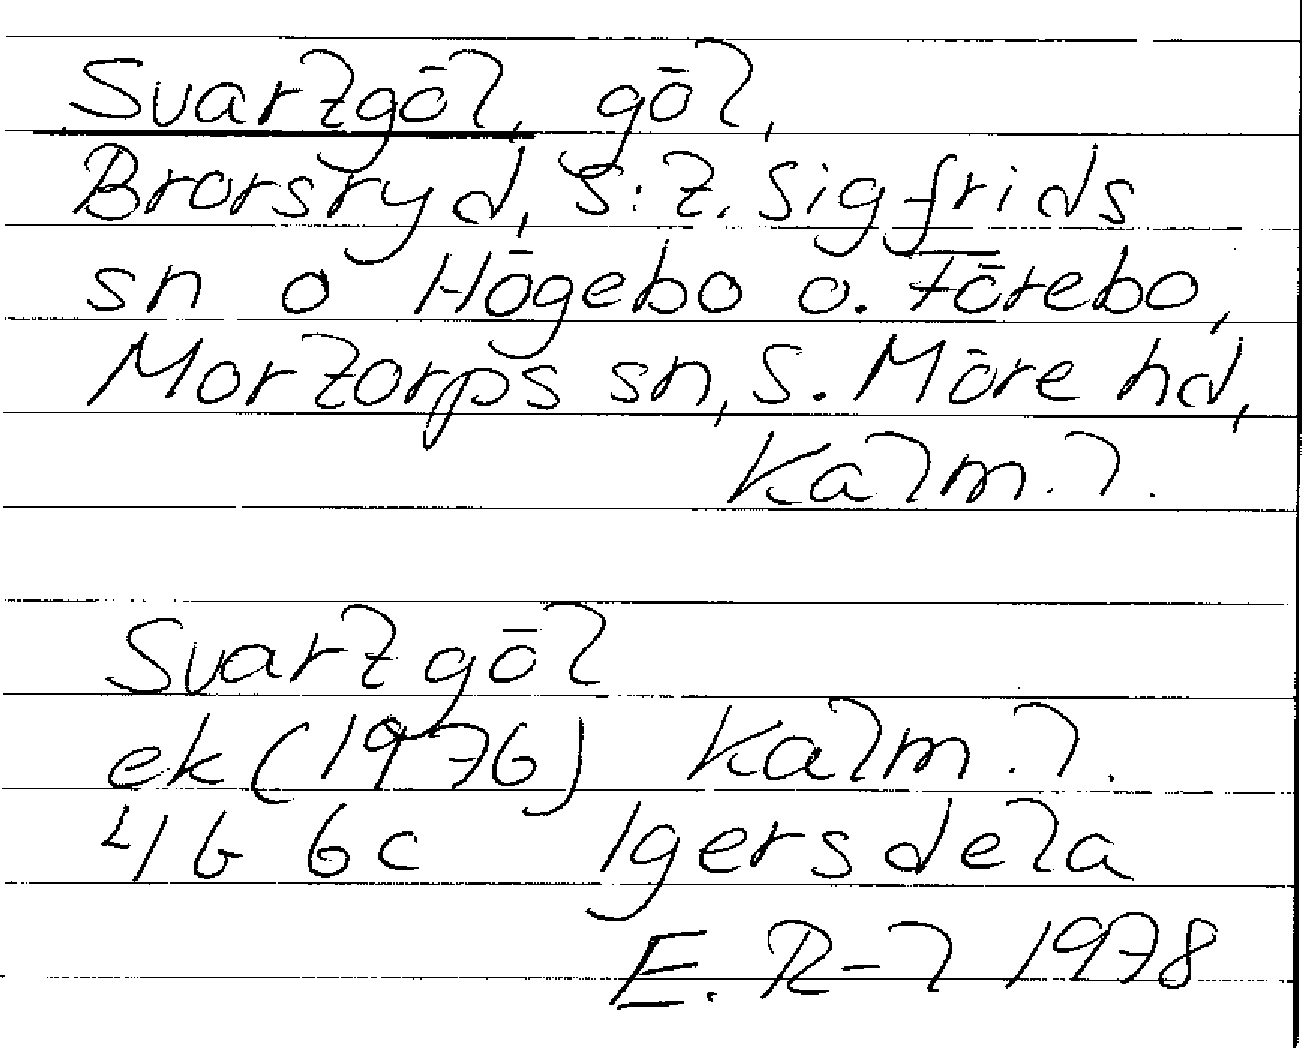 Svartgöl, göl,
Brorsryd, S:t. Sigfrids
sn o Högebo o. Törebo,
Mortorps sn, S. Möre hd,
Kalm. l.
Svartgöl
ek (1976) Kalm. l.
4G 6c Igersdela
E. R-l 1978